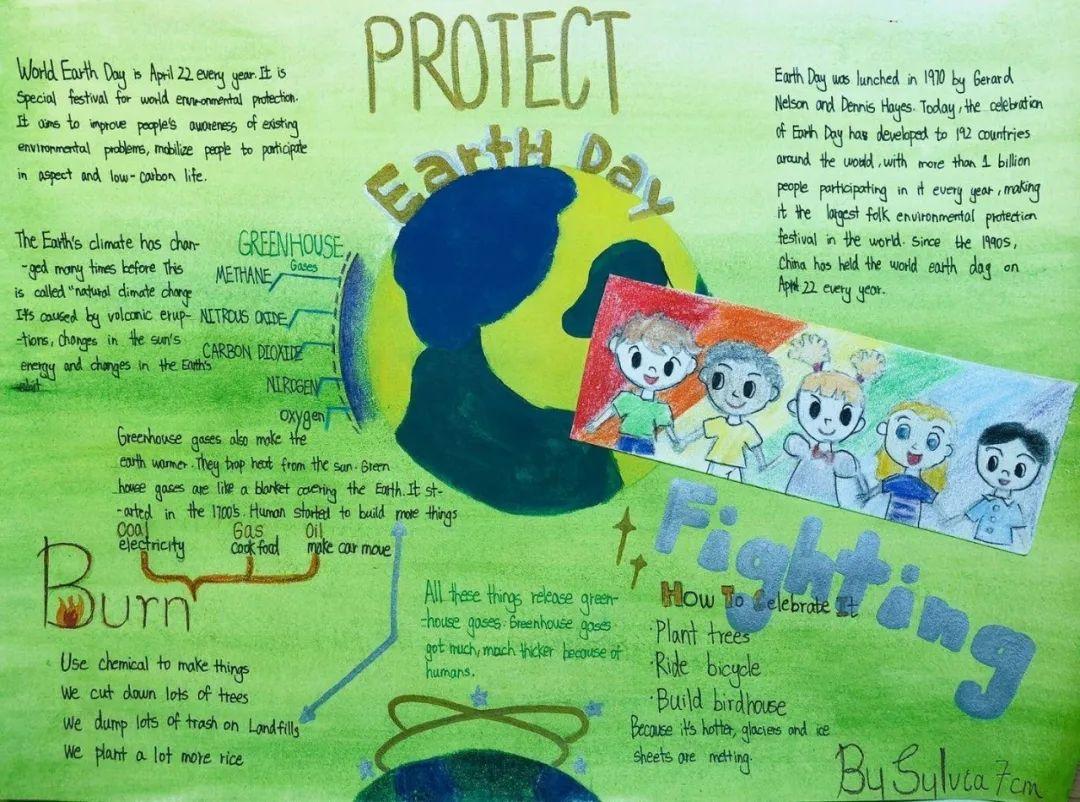 PROTECT
Earth Day
World Earth Day is April 22 every year. It is
Special festival for world environmental protection.
It aims to improve people's awareness of existing
environmental problems, mobilize people to participate
in aspect and low-carbon life.
Earth Day was lunched in 1970 by Gerard
Nelson and Dennis Hayes. Today, the celebration
of Earth Day has developed to 192 countries
around the world, with more than 1 billion
people participating in it every year, making
it the largest folk environmental protection
festival in the world. Since the 1990s,
China has held the world earth dag on
April 22 every year.
The Earth's climate has chan-
-ged many times before This
is called "natural climate change
It's caused by volcanic erup-
-tions, changes in the sun's
energy and changes in the Earth's
GREENHOUSE
Gases
METHANE
NITROUS OXIDE
CARBON DIOXIDE
NIROGEN
Oxygen
Greenhouse gases also make the
earth warmer. They trap heat from the sun. Green
house gases are like a blanket covering the Earth. It st-
-arted in the 1700's. Human started to build more things
Coal Gas Oil
electricity cook food make car move
Burn
Use chemical to make things
We cut down lots of trees
We dump lots of trash on Landfills
We plant a lot more rice
All these things release green-
-house gases. Greenhouse gases
got much, much thicker because of
humans.
Fighting
How To Celebrate It
·Plant trees
·Ride bicycle
·Build birdhouse
Because it's hotter, glaciers and ice
sheets are melting.
By Sylvia 7cm